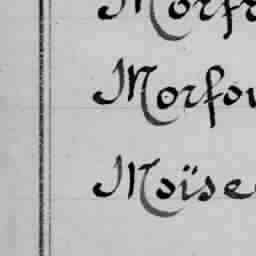 Morfr
Morfou
Moïse